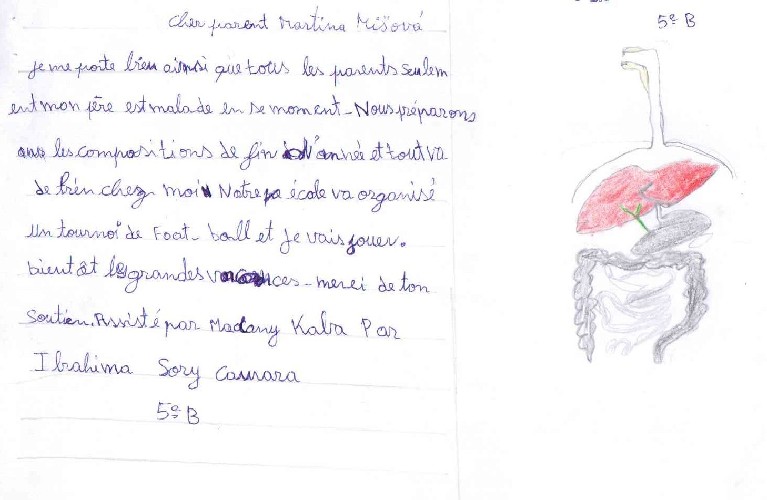 Cher parent Martina Mišová
je me porte bien ainsi que tous les parents seulem
ent mon père est malade en se moment - Nous préparons
les compositions de fin d'année et tout va
de bien chez moi Notre école va organisé
un tournoi de Foot-ball et je vais jouer.
bientôt les grandes vacances - merci de ton
Soutien. Assisté par Madany Kaba Par
Ibrahima Sory Camara
5e B
5e B